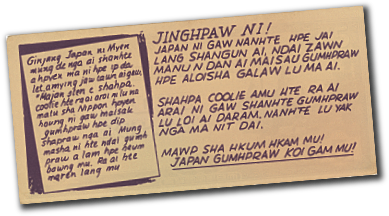 Ginjang Japan ni Myen
mung de nga ai shanhte
a hpyex ma ni hpe ga da
let amying jaw tawn ai gaw,
"Majan dten e shahpa
coolie hte raai aroi ni lu na
matu sha Nippon hpyen
hpung ni gaw maisau
gumhpraw hpe dip
shapraw nga ai Mung
masha ni hte ndai gumh
praw a lam hpe hkum
baung mu. Ra ai hte
maren lang mu
JINGHPAW NI!
JAPAN NI GAW NANHTE HPE JAI
LANG SHANGUN AI, NDAI ZAWN
MANU N DAN AI MAISAU GUMHPRAW
HPE ALOISHA GALAW LU MA AI.
SHAHPA COOLIE AMU HTE RA AI
ARAI NI GAW SHANHTE GUMHPRAW
LU LOI AI DARAM, NANHTE LU YAK
NGA MA NIT DAI.
MAWP SHA HKUM HKAM MU!
JAPAN GUMHPRAW KOI GAM MU!